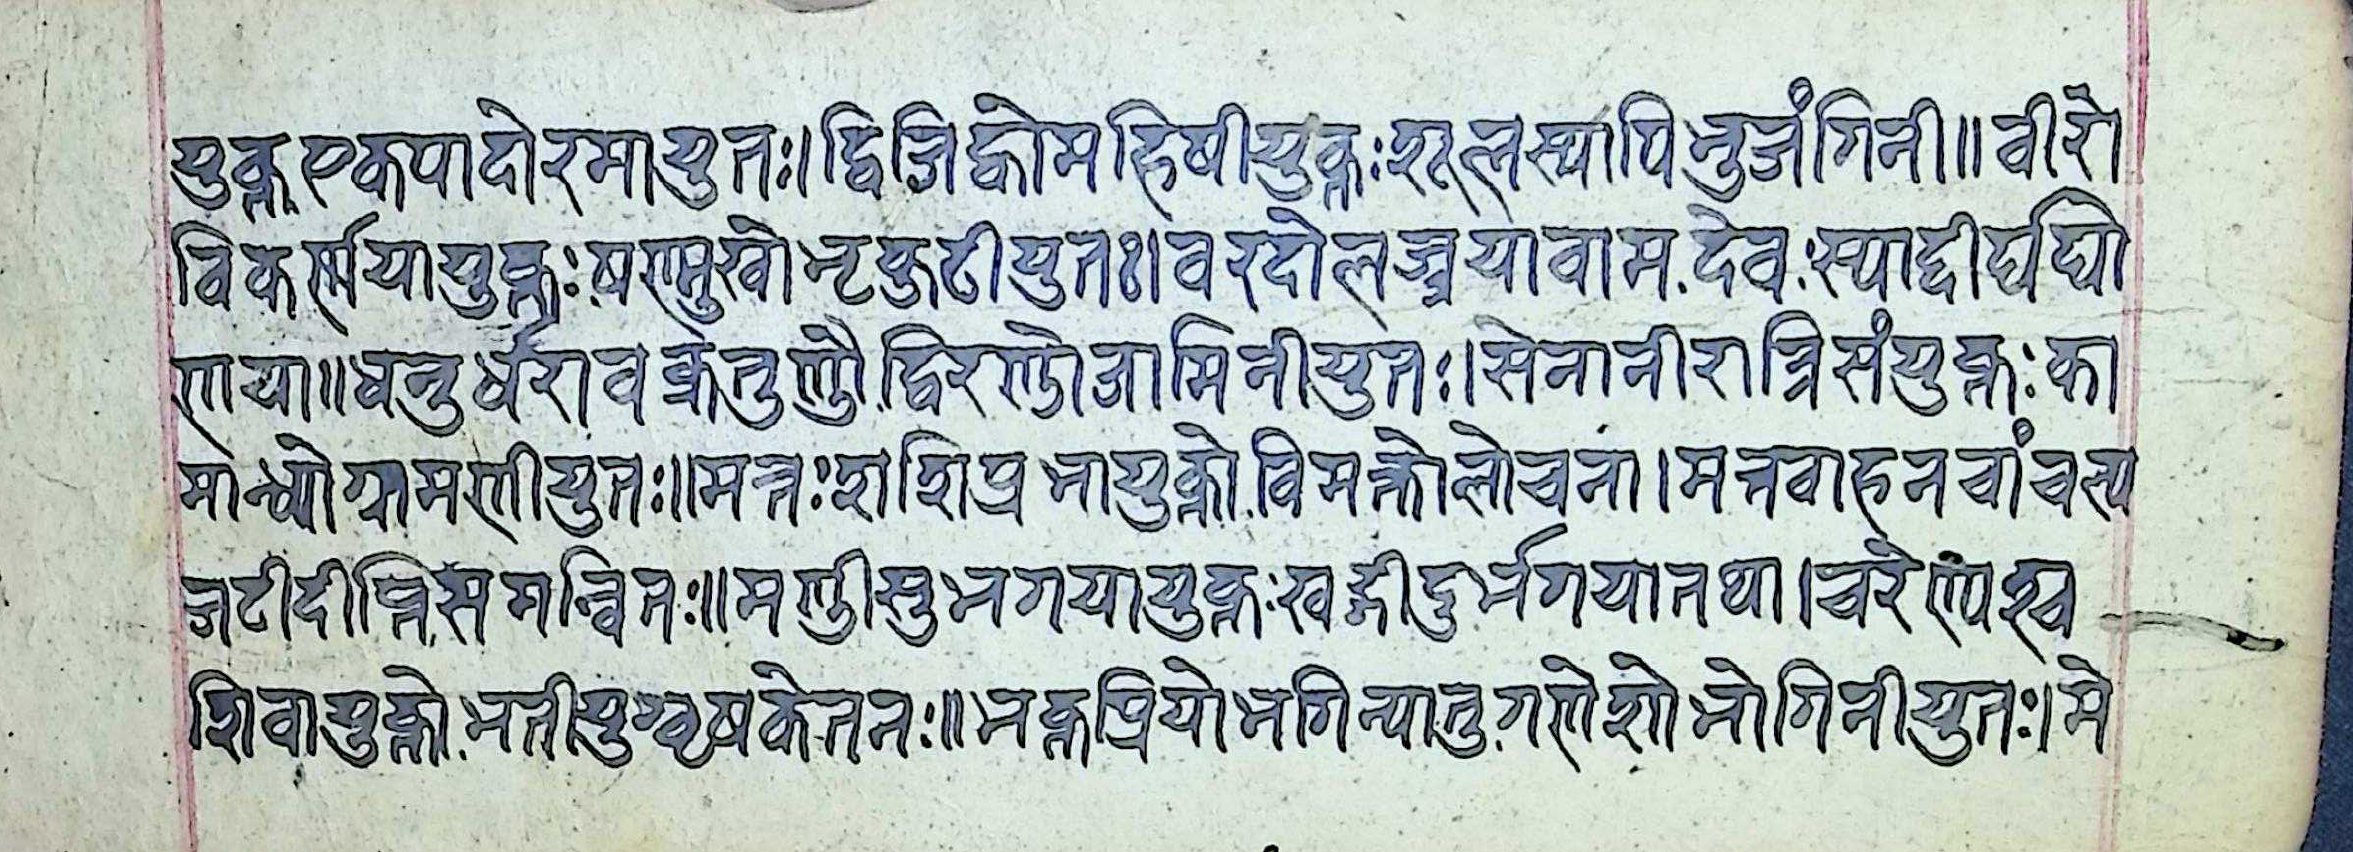 युक्त एकपादोरमायुतः।द्विजिह्वोमहिषीयुक्तः शूलस्यापिभुजंगिनी॥वीरो
विकर्स्मयायुक्तः षण्मुखोभृकुटीयुतः।वरदोलज्जयावामदेवःस्याद्दीर्घघो
णया॥धनुर्धरावक्रतुण्डौ द्विरण्डोजामिनीयुतः।सेनानीरात्रिसंयुक्तःका
मान्धोग्रामणीयुतः॥मत्तःशशिप्रभायुक्तो विमत्तोलोचना।मत्तवाहनचांचत्य
जटीदीप्तिसमन्वितः॥मण्डीसुभगयायुक्तःखड्गीदुर्भगयातथा।वरेण्यश्च
शिवायुक्तो भतीयुग्वृषकेतनः॥भक्तप्रियोभगिन्यातुगणेशोभोगिनीयुतः।मे